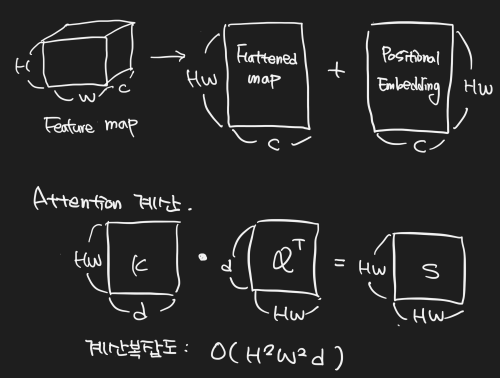 H
W
C
Feature map
HW
Flattened
map
C
+
Positional
Embedding
HW
C
Attention 계산.
HW
K
d
·
d
Q^T
HW
=
HW
S
HW
계산복잡도: O(H²W²d)